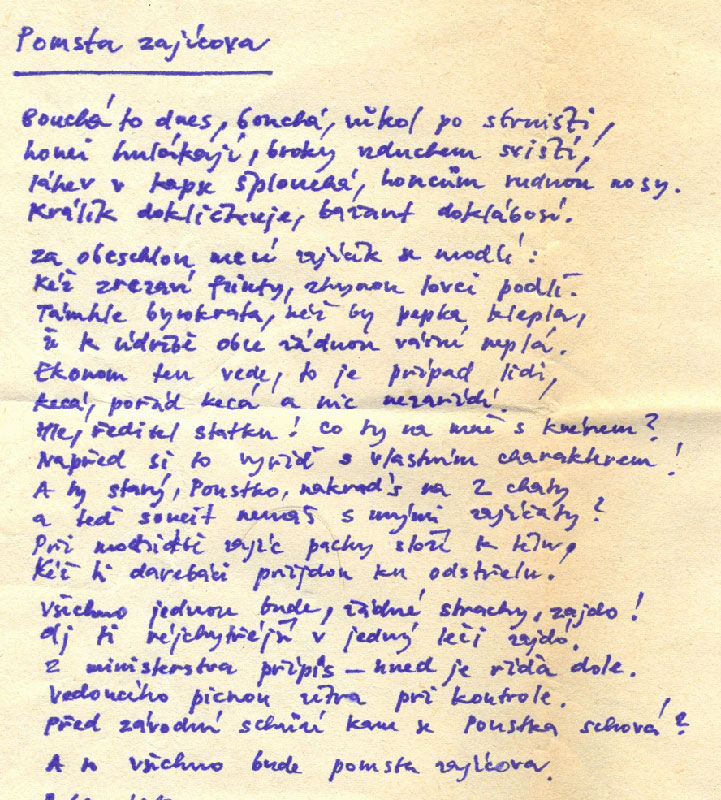 Pomsta zajícova
Bouchá to dnes, bouchá, vůkol po strništi,
honci hulákají, broky vzduchem sviští,
láhev v kapse šplouchá, honcům rudnou nosy.
Králík dokličkuje, bažant doklábosí.
Za obeschlou mezí zajíček se modlí:
Kéž zrezaví flinty, zhynou lovci podlí.
Támhle byrokrata, kéž by pepka klepla,
k údržbě obce žádnou vášní neplá.
Ekonom ten vede, to je případ lidí,
kecá, pořád kecá a nic nezařídí.
Hle, ředitel statku! Co ty na mně s kvérem?
Napřed si to vyřiď s vlastním charakterem!
A ty starý, Poustko, nakrad's na 2 chaty
a teď soucit nemáš s mými zajíčaty?
Při modlitbě zajíc packy složí k tělu,
Kéž ti darebáci přijdou ku odstřelu.
Všichno jednou bude, žádné strachy, zajdo!
Oj ti nejchytřejší v jedný leči zajdó.
Z ministerstva přípis – hned je řiďa dole.
Vedoucího picnou zítra při kontrole.
Před závodní schůzí kam se Poustka schová?
A to všichno bude pomsta zajícova.